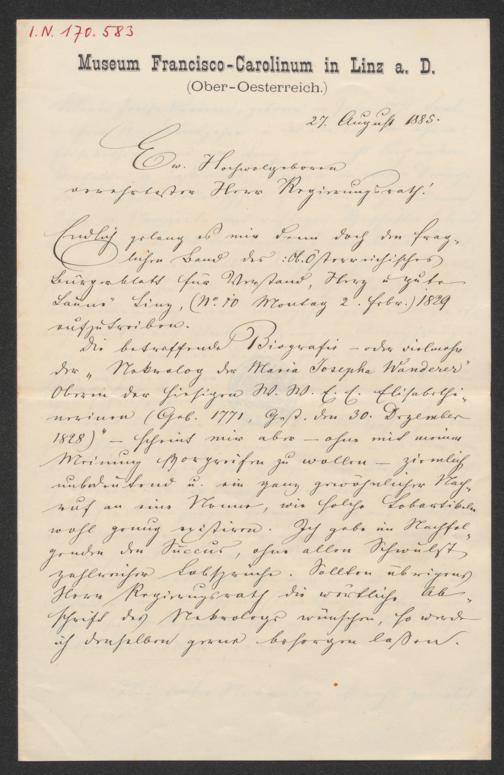 I.N. 170.583
Museum Francisco-Carolinum in Linz a. D.
(Ober-Oesterreich.)
27. August 1885.
Ew. Hochwolgeboren
verehrtester Herr Regierungsrath!
Endlich gelang es mir denn doch den frag-
lichen Band des: Ob. Österreichisches
Bürgerblatt für Verstand, Herz u gute
Laune" Linz, (No. 10 Montag 2. Febr.) 1829
aufzutreiben.
Die betreffende Biografie – oder vielmehr
der „Nekrolog der Maria Josepha Wanderer"
Oberin der hiesigen W. W. E. E. Elisabethi-
nerinen (Geb. 1771, Gest. den 30. Dezember
1828)" – scheint mir aber – ohne mit meiner
Meinung vorgreifen zu wollen – ziemlich
unbedeutend u. ein ganz gewöhnlicher Nach-
ruf an eine Nonne, wie solche Lobartikeln
wohl genug existiren. Ich gebe im Nachfol-
genden den Succus, ohne allen Schwulst
zahlreicher Lobsprüche. Sollten übrigens
Herr Regierungsrath die wörtliche Ab-
schrift des Nekrologs wünschen, so werde
ich denselben gerne besorgen lassen.